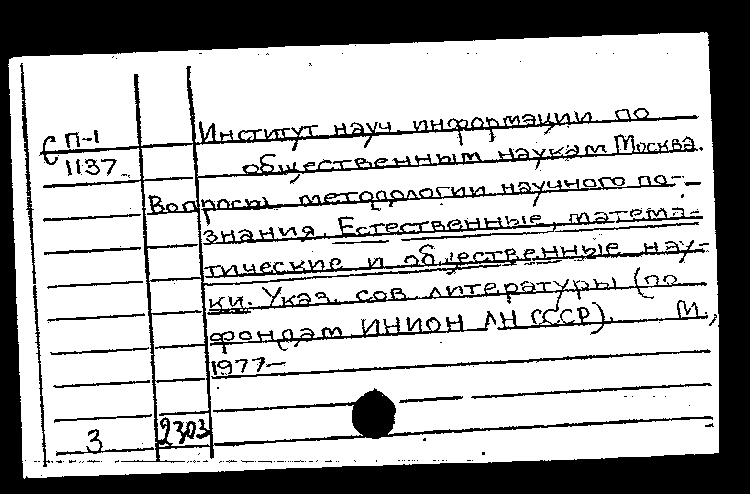 С П-1
1137
Институт науч. информации по
общественным наукам Москва.
Вопросы методологии научного по-
знания. Естественные, матема-
тические и общественные нау-
ки. Указ. сов. литературы (по
фондам ИНИОН АН СССР). М.,
1977-
3 2303